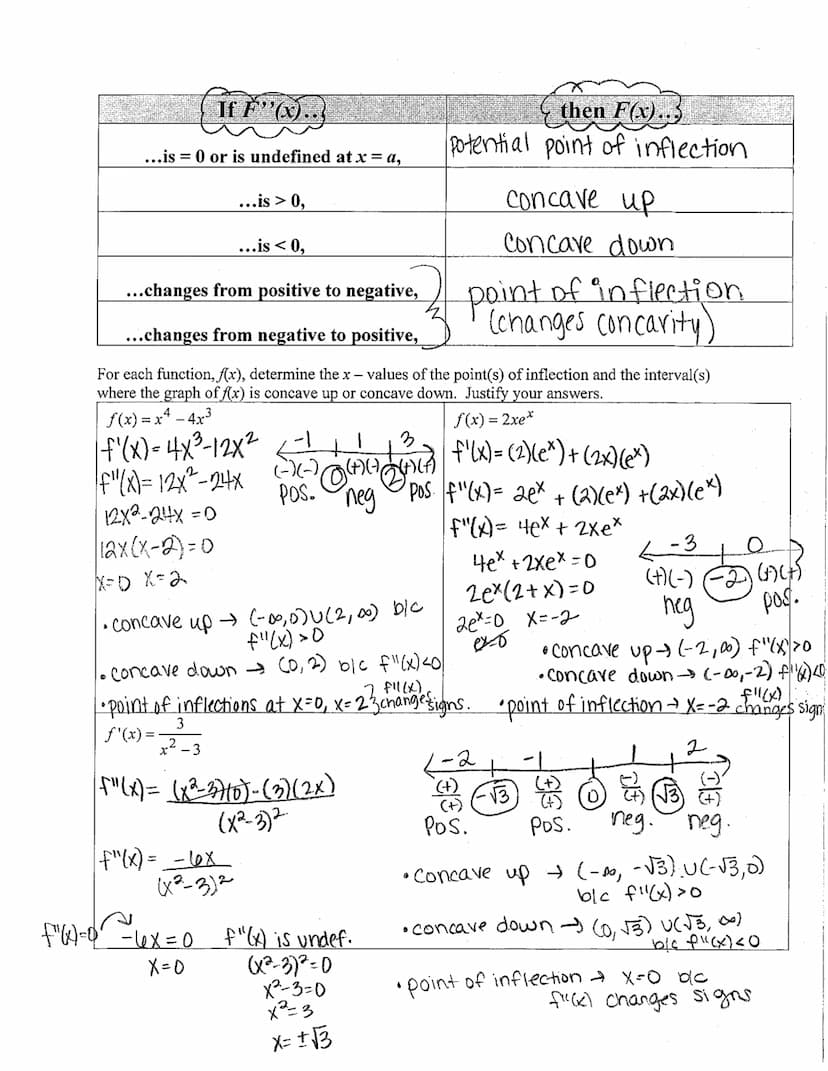 If F’’(x)...
then F(x)...
...is = 0 or is undefined at x = a,
potential point of inflection
...is > 0,
concave up
...is < 0,
concave down
...changes from positive to negative,
...changes from negative to positive,
point of inflection
(changes concavity)
For each function, f(x), determine the x – values of the point(s) of inflection and the interval(s)
where the graph of f(x) is concave up or concave down. Justify your answers.
f(x) = x⁴ – 4x³
f'(x) = 4x³-12x²
f"(x) = 12x²-24x
12x²-24x = 0
12x(x-2) = 0
x=0 x=2
-1 1 3
(-)(-) 0 (+)(-) 2 (+)(+)
pos. neg pos
• concave up → (-∞,0)∪(2,∞) b/c
f"(x) > 0
• concave down → (0,2) b/c f"(x)<0
• point of inflections at x=0, x=2 } f"(x) changes signs.
f(x) = 2xeˣ
f'(x) = (2)(eˣ) + (2x)(eˣ)
f"(x) = 2eˣ + (2)(eˣ) + (2x)(eˣ)
f"(x) = 4eˣ + 2xeˣ
4eˣ + 2xeˣ = 0
2eˣ(2+x) = 0
2eˣ=0 x=-2
-3 0
(+)(-) -2 (+)(+)
neg pos.
• concave up → (-2,∞) f"(x)>0
• concave down → (-∞,-2) f"(x)<0
• point of inflection → x=-2 f"(x) changes sign
f'(x) = 3/(x² – 3)
f"(x) = (x²-3)(0)-(3)(2x)
(x²-3)²
f"(x) = -6x
(x²-3)²
f"(x)=0 -6x = 0
x=0
f"(x) is undef.
(x²-3)²=0
x²-3=0
x²=3
x=±√3
-2 -1 1 2
(+)/(+) -√3 (+)/(+) 0 (-)/(+) √3 (-)/(+)
pos. pos. neg. neg.
• concave up → (-∞, -√3) ∪ (-√3,0)
b/c f"(x) >0
• concave down → (0, √3) ∪ (√3, ∞)
b/c f"(x)<0
• point of inflection → x=0 b/c
f"(x) changes signs